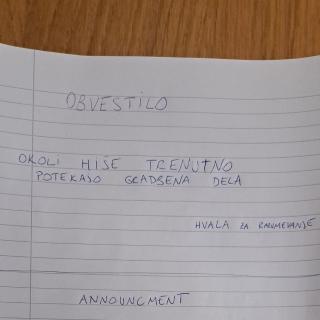 OBVESTILO
OKOLI HIŠE TRENUTNO
POTEKAJO GRADBENA DELA
HVALA ZA RAZUMEVANJE
ANNOUNCMENT